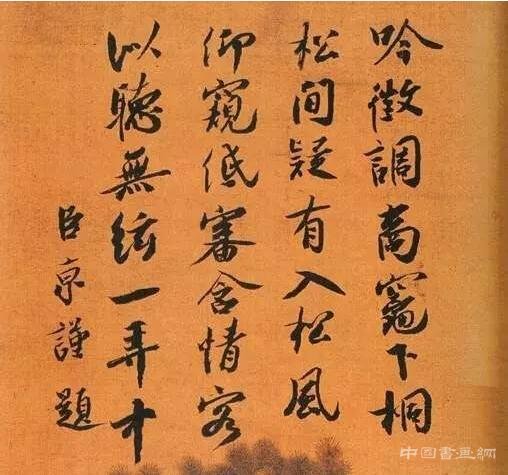 吟徵調商竈下桐
松間疑有入松風
仰窺低審含情客
似聽無絃一弄中
臣京謹題
中國書畫網